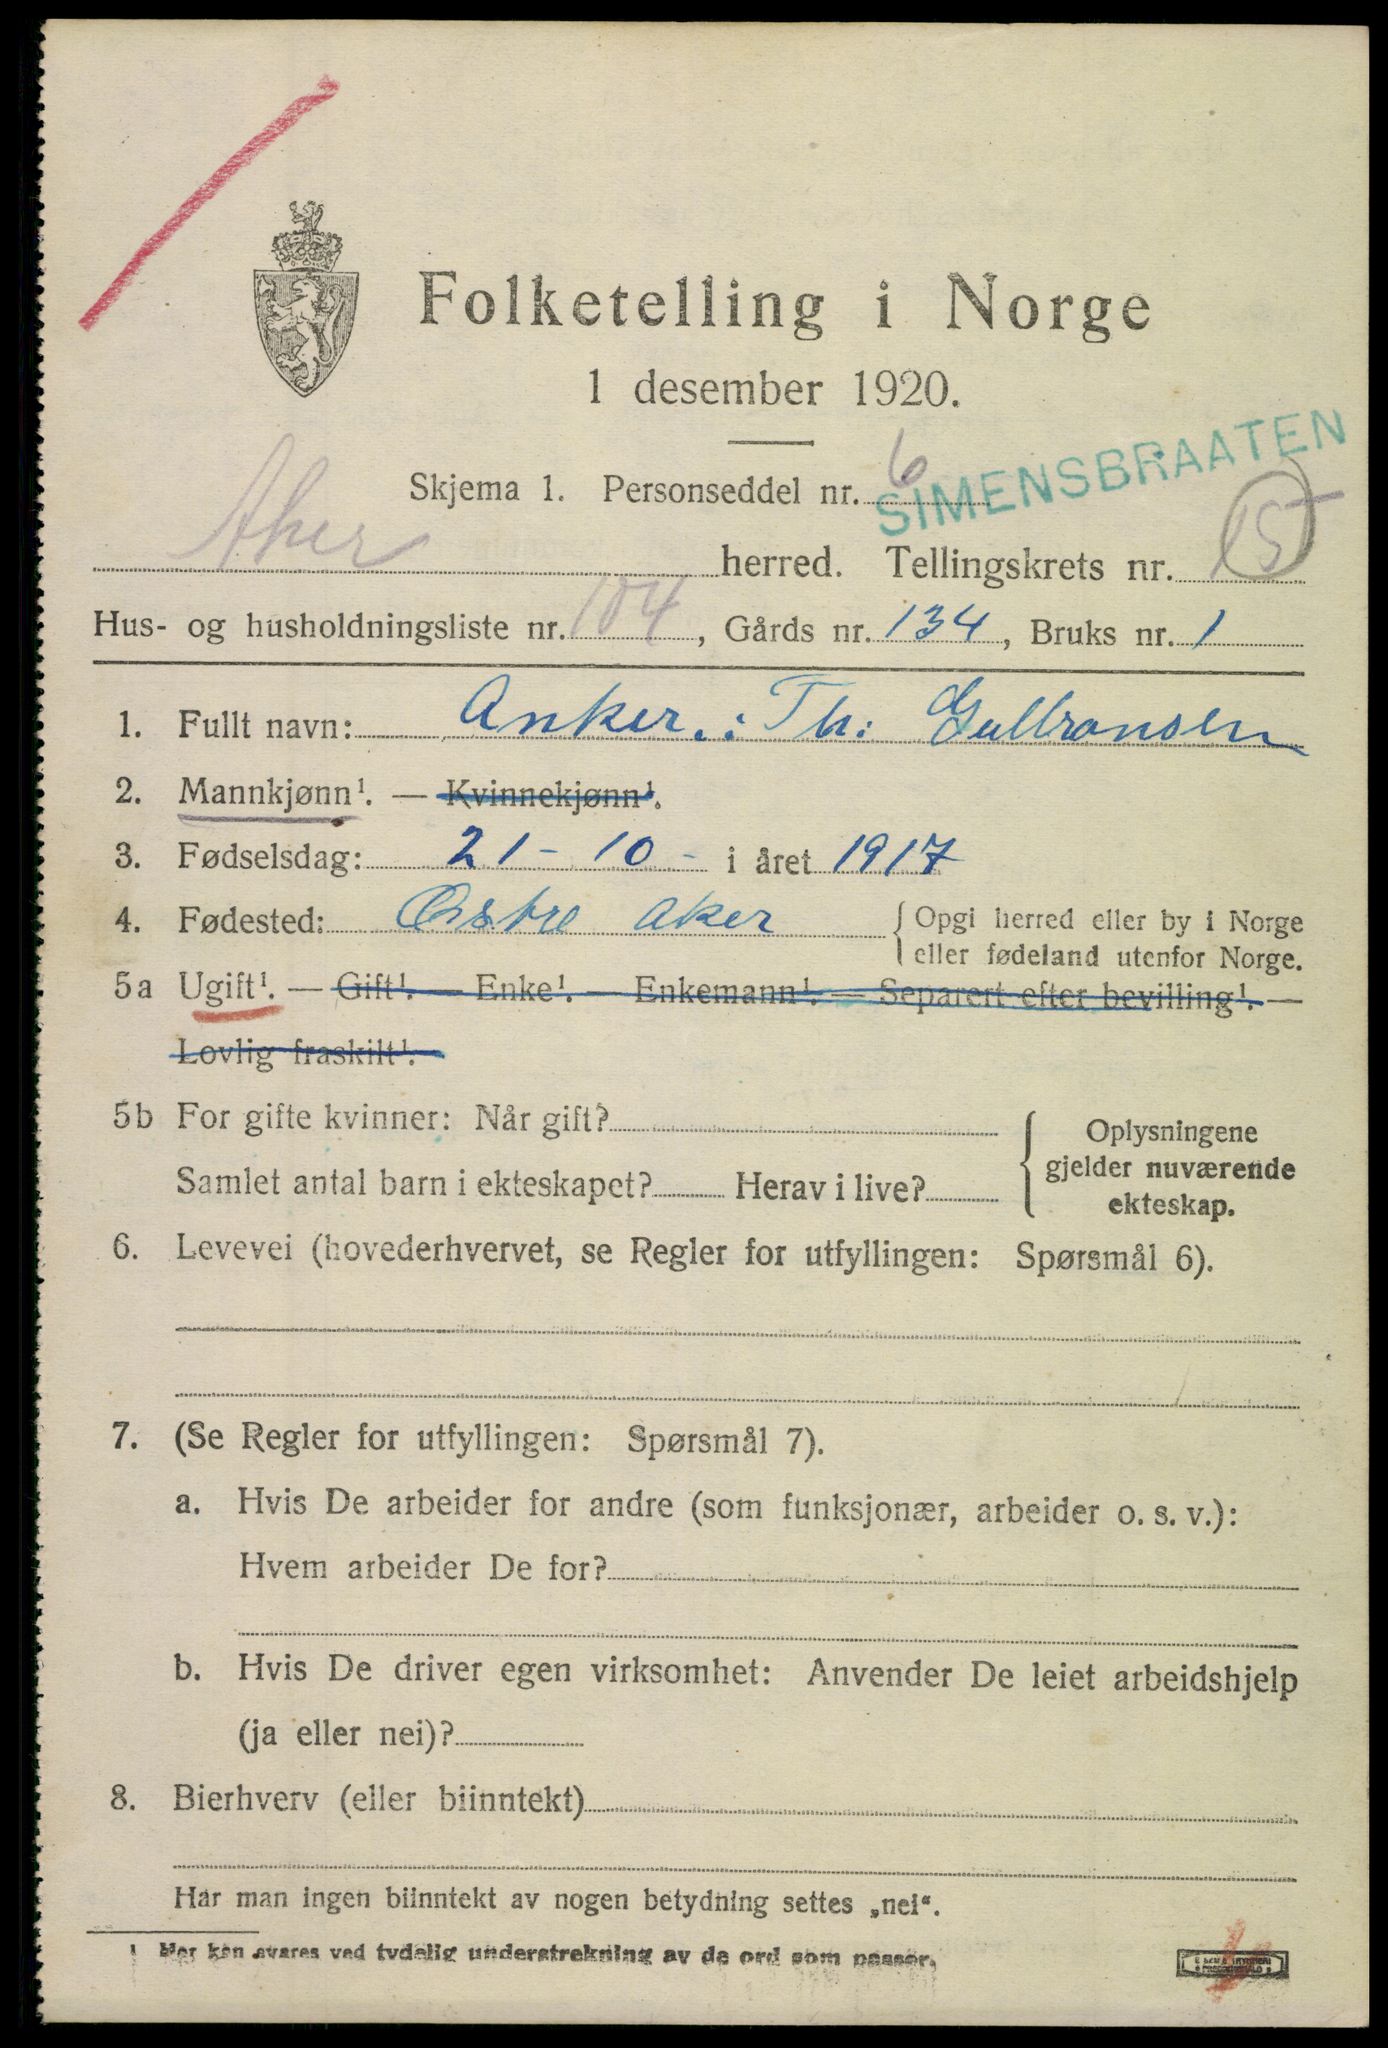 Folketelling i Norge
1 desember 1920.
Skjema 1. Personseddel nr. 6
SIMENSBRAATEN
Aker herred. Tellingskrets nr. 15
Hus- og husholdningsliste nr. 104, Gårds nr. 134, Bruks nr. 1
1. Fullt navn: Anker.: Th: Gulbransen
2. Mannkjønn¹. — Kvinnekjønn¹.
3. Fødselsdag: 21 - 10 - i året 1917
4. Fødested: Østre Aker { Opgi herred eller by i Norge
eller fødeland utenfor Norge.
5a Ugift¹. — Gift¹. — Enke¹. — Enkemann¹. — Separert efter bevilling¹. —
Lovlig fraskilt¹.
5b For gifte kvinner: Når gift?
Samlet antal barn i ekteskapet? Herav i live?
{ Oplysningene
gjelder nuværende
ekteskap.
6. Levevei (hovederhvervet, se Regler for utfyllingen: Spørsmål 6).
7. (Se Regler for utfyllingen: Spørsmål 7).
a. Hvis De arbeider for andre (som funksjonær, arbeider o. s. v.):
Hvem arbeider De for?
b. Hvis De driver egen virksomhet: Anvender De leiet arbeidshjelp
(ja eller nei)?
8. Bierhverv (eller biinntekt)
Har man ingen biinntekt av nogen betydning settes „nei“.
1 Her kan svares ved tydelig understrekning av de ord som passer.